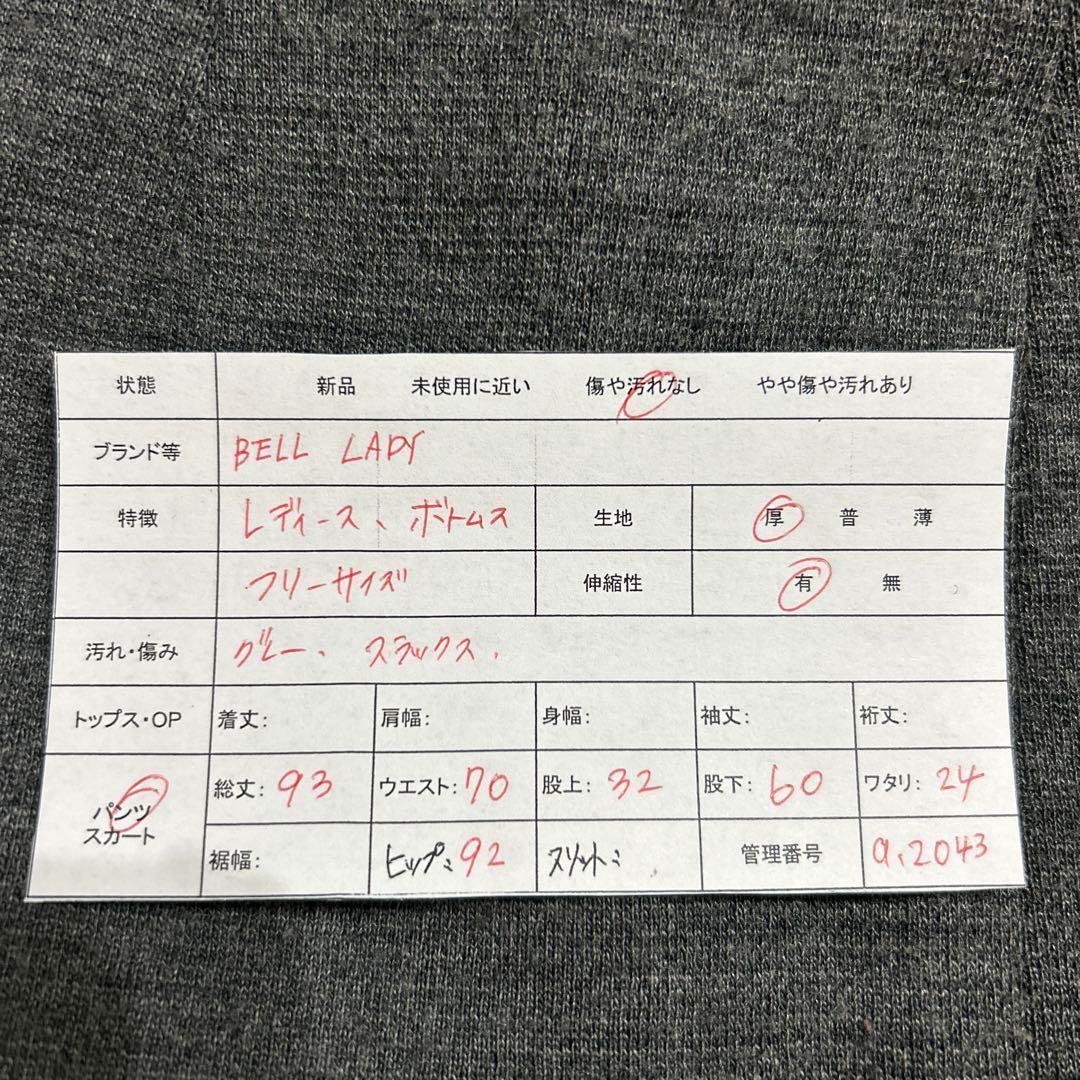 状態 新品 未使用に近い 傷や汚れなし やや傷や汚れあり
ブランド等 BELL LADY
特徴 レディース、ボトムス 生地 厚 普 薄
フリーサイズ 伸縮性 有 無
汚れ・傷み グレー、スラックス、
トップス・OP 着丈: 肩幅: 身幅: 袖丈: 裄丈:
パンツ スカート 総丈: 93 ウエスト: 70 股上: 32 股下: 60 ワタリ: 24
裾幅: ヒップ: 92 スリット: 管理番号 a.2043